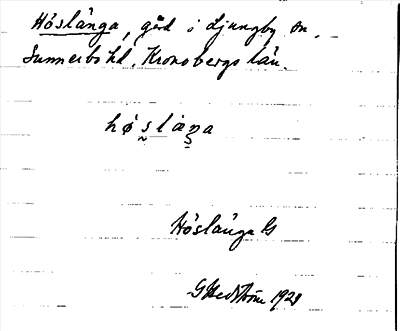 Höslänga, gård i Ljungby sn,
Sunnerbo hd, Kronobergs län.
høslaŋa
Höslänga G
G Hedström 1929